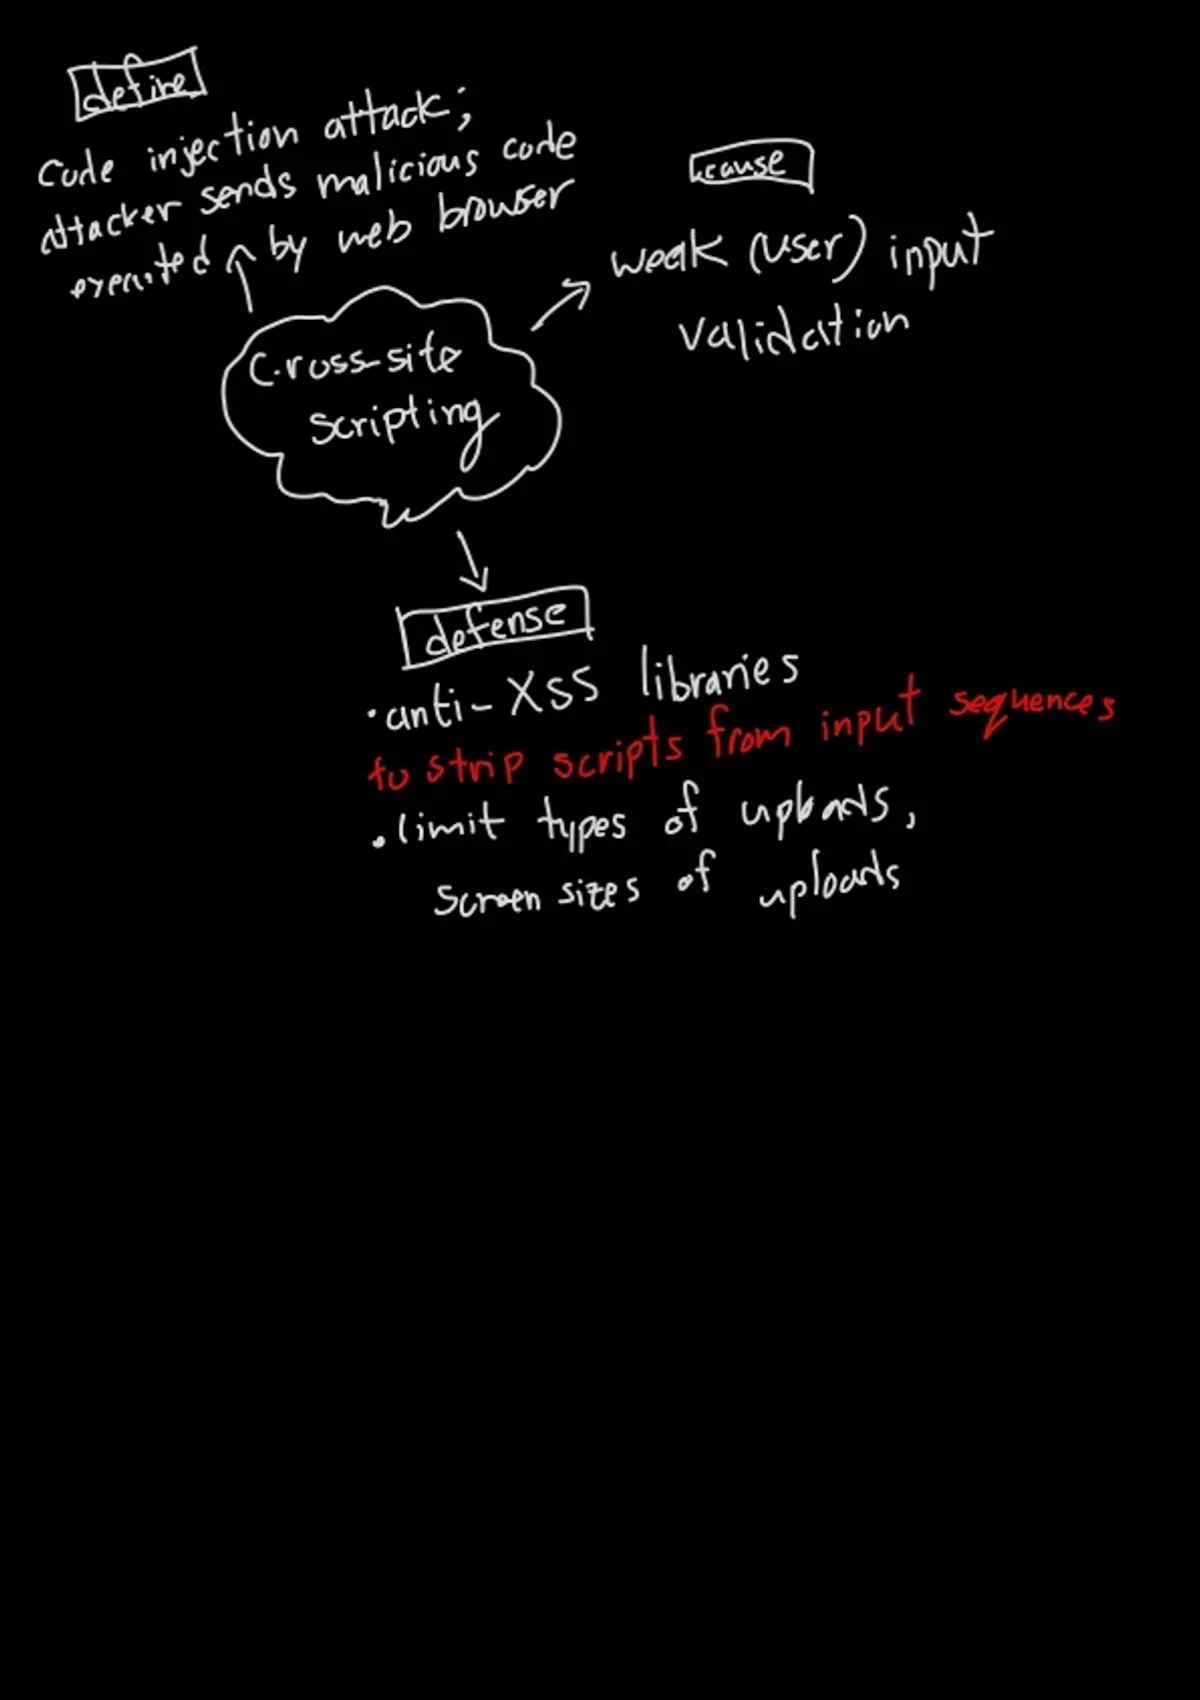 define
Code injection attack;
attacker sends malicious code
executed by web browser
cause
weak (user) input
validation
Cross-site
scripting
defense
•anti-XSS libraries
to strip scripts from input sequences
•limit types of uploads,
screen sizes of uploads